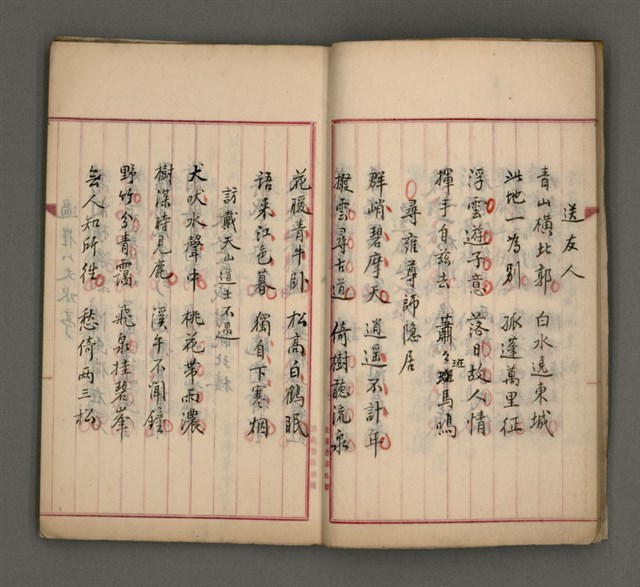 送友人
青山橫北郭 白水遶東城
此地一為別 孤蓬萬里征
浮雲遊子意 落日故人情
揮手自茲去 蕭々班馬鳴
尋雍尊師隐居
群峭碧摩天 逍遥不計年
撥雲尋古道 倚樹聽流泉
花暖青牛卧 松高白鶴眠
語来江色暮 獨自下寒烟
訪戴天山道士不遇
犬吠水聲中 桃花帶雨濃
樹深時見鹿 溪午不聞鐘
野竹分青靄 飛泉挂碧峯
無人知所徃 愁倚兩三松